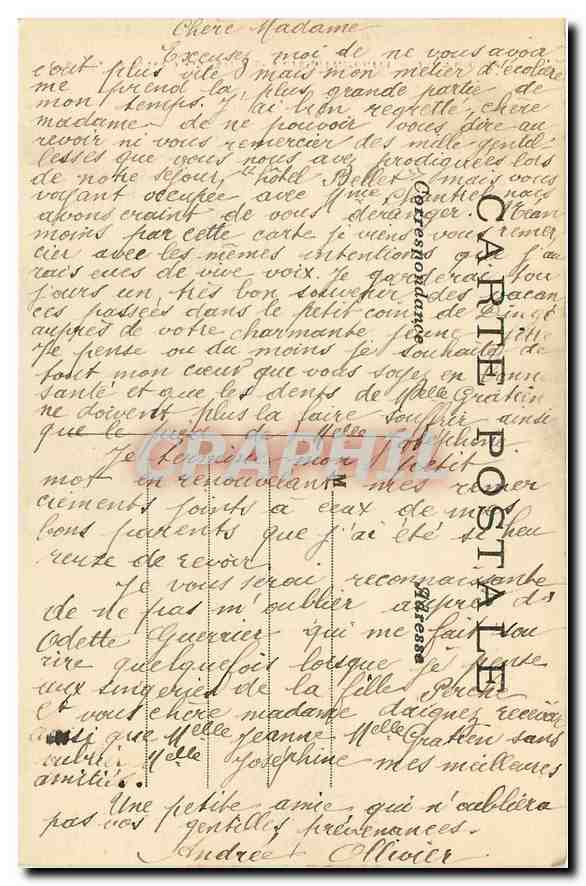 Chère Madame
Excusez moi de ne vous avoir
écrit plus vite, mais mon métier d'écolière
me prend la plus grande partie de
mon temps. J'ai bien regretté, chère
madame de ne pouvoir vous dire au
revoir ni vous remercier des mille genti-
lesses que vous nous avez prodiguées lors
de notre séjour, "hôtel Bellet" mais vous
voyant occupée avec Mme Chantrel nous
avons craint de vous déranger. Néan
moins par cette carte je viens vous remer
cier avec les mêmes intentions que j'au
rais eues de vive voix. Je garderai tou
jours un très bon souvenir des vacan
ces passées dans le petit coin de
auprès de votre charmante jeune fille
Je pense ou du moins je souhaite de
tout mon cœur que vous soyez en bonne
santé et que les dents de Melle Gratien
ne doivent plus la faire souffrir ainsi
que le de Melle Joséphine.
Je termine mon petit
mot en renouvelant mes remer
ciements joints à ceux de mes
bons parents que j'ai été si heu
reuse de revoir.
Je vous serai reconnaissante
de ne pas m'oublier auprès d'
Odette Guerrier qui me fait sou
rire quelquefois lorsque je pense
aux singeries de la fille
Et vous chère madame daignez recevoir
ainsi que Melle Jeanne Melle Gratien sans
oublier Melle Joséphine mes meilleures
amitiés.
Une petite amie qui n'oubliera
pas vos gentilles prévenances.
Andrée Ollivier
CARTE POSTALE
Correspondance
Adresse
M
CPAPHIL